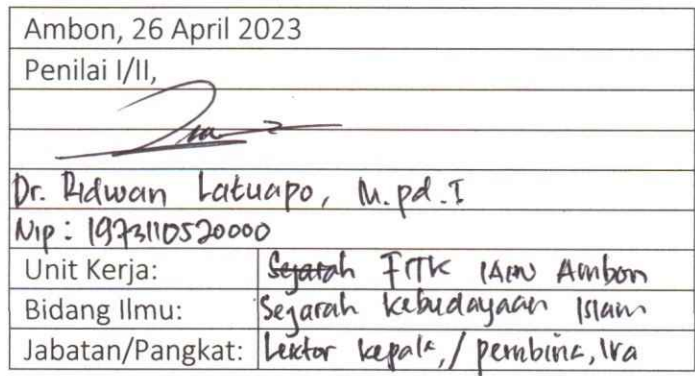 Ambon, 26 April 2023
Penilai I/II,
Dr. Ridwan Latuapo, M.pd.I
Nip: 197311052000
Unit Kerja: Sejarah FITK IAIN Ambon
Bidang Ilmu: Sejarah kebudayaan Islam
Jabatan/Pangkat: Lektor kepala,/ pembina, IVa